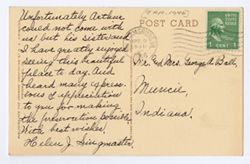 Unfortunately Arthur
could not come with
us but his sister and
I have greatly enjoyed
seeing this beautiful
place to-day. And
heard many expres-
sions of appreciation
to you for making
the preservation possible.
With best wishes.
Helen J. Singmaster.
POST CARD
Mr. and Mrs. George A. Ball,
Muncie,
Indiana.
1 CENT 1